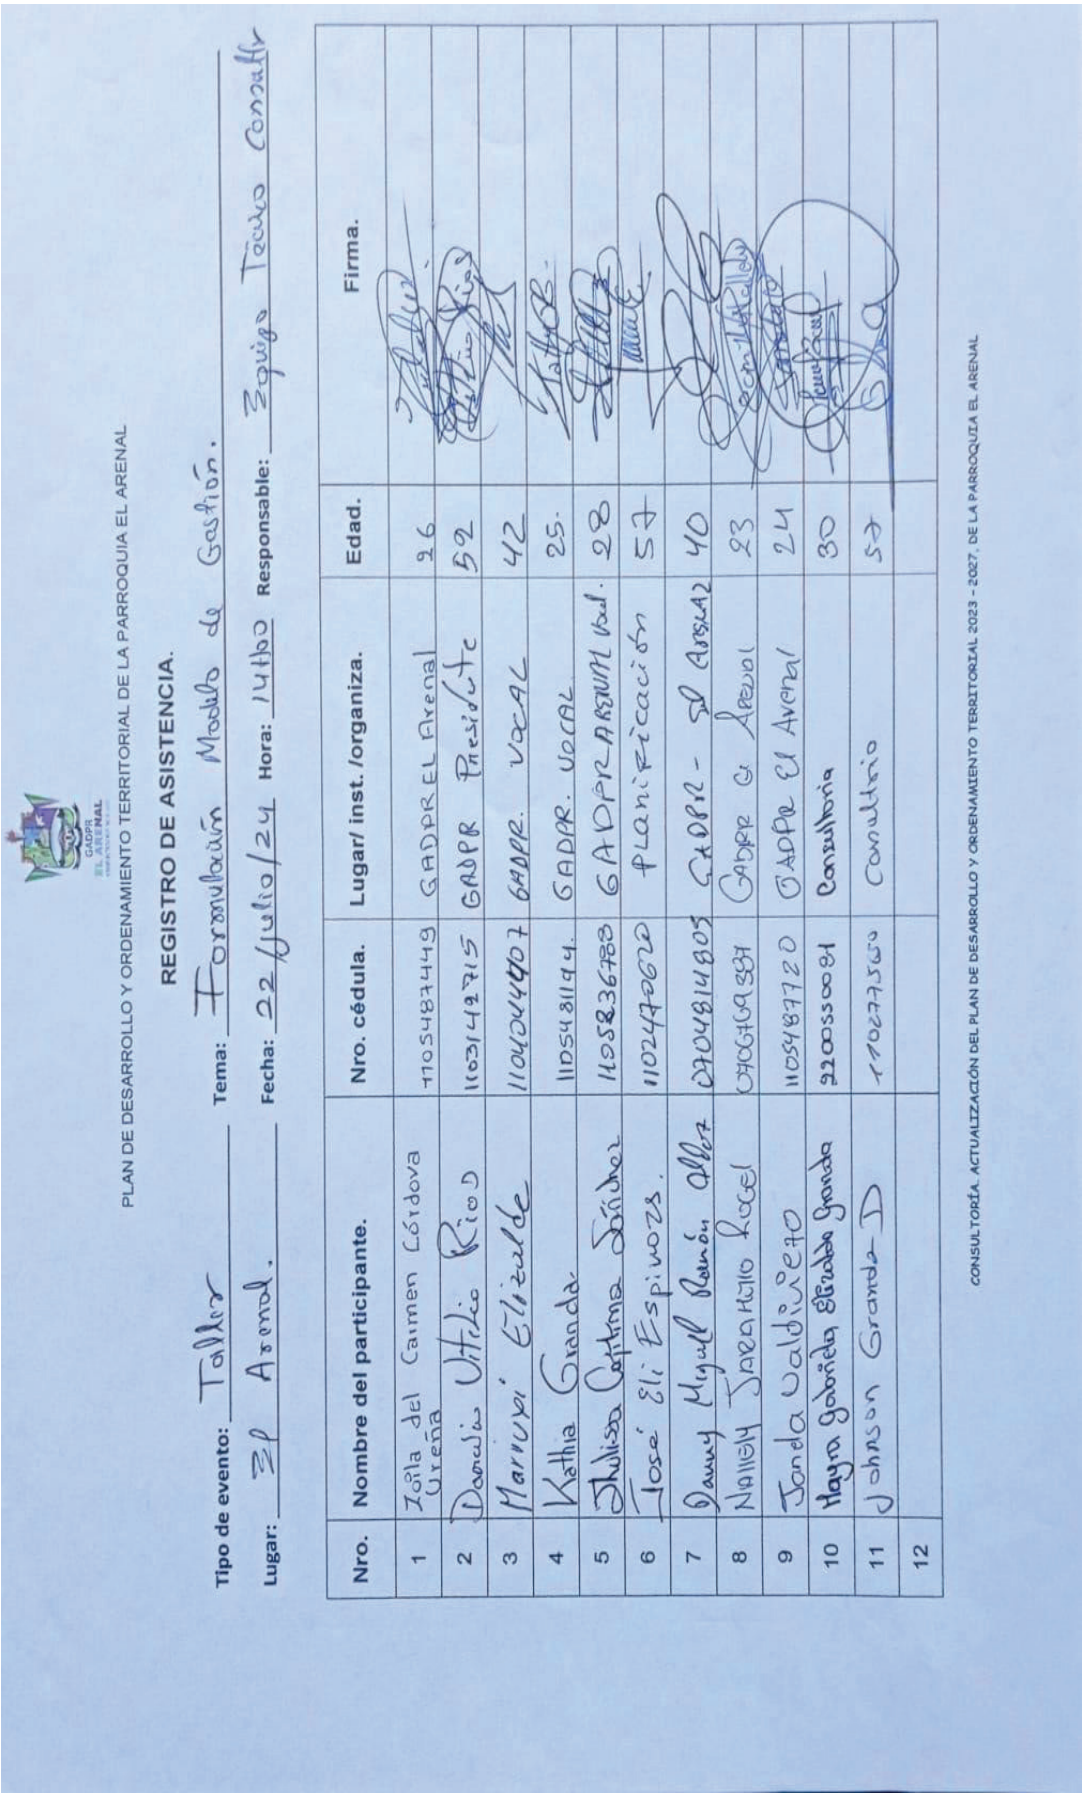 GADPR
EL ARENAL
PLAN DE DESARROLLO Y ORDENAMIENTO TERRITORIAL DE LA PARROQUIA EL ARENAL
REGISTRO DE ASISTENCIA.
Tipo de evento: Taller Tema: Formulación Modelo de Gestión.
Lugar: El Arenal. Fecha: 22/Julio/24 Hora: 14H00 Responsable: Equipo Técnico Consultor
Nro. Nombre del participante. Nro. cédula. Lugar/ inst. /organiza. Edad. Firma.
1 Zoila del Carmen Córdova Ureña 1105487449 GADPR EL Arenal 26
2 Vitilio Rios 1103142715 GADPR Presidente 59
3 Elizalde 1104044407 GADPR. VOCAL 42
4 Kathia Granda. 1105481144. GADPR. VOCAL 25.
5 Sánchez 1105836788 GADPR ARENAL Vocal. 28
6 José Eli Espinoza. 1102470620 Planificación 57
7 Miguel Ramón 0704814805 GADPR - El Arenal 40
8 Jaramillo Rogel GADPR El Arenal 23
9 Valdiviezo 1105487720 GADPR El Arenal 24
10 Mayra Gabriela Elizalde Granda 2200550081 Consultoria 30
11 Johnson Granda D Consultorio 57
12
CONSULTORÍA. ACTUALIZACIÓN DEL PLAN DE DESARROLLO Y ORDENAMIENTO TERRITORIAL 2023 - 2027, DE LA PARROQUIA EL ARENAL